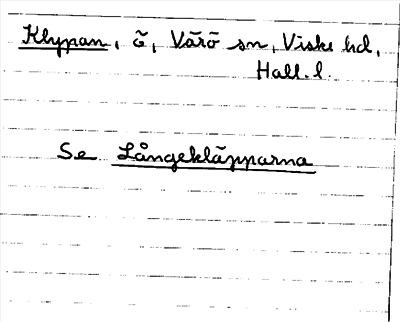 Klypan, ö, Värö sn, Viske hd,
Hall. l.
Se Långekläpparna